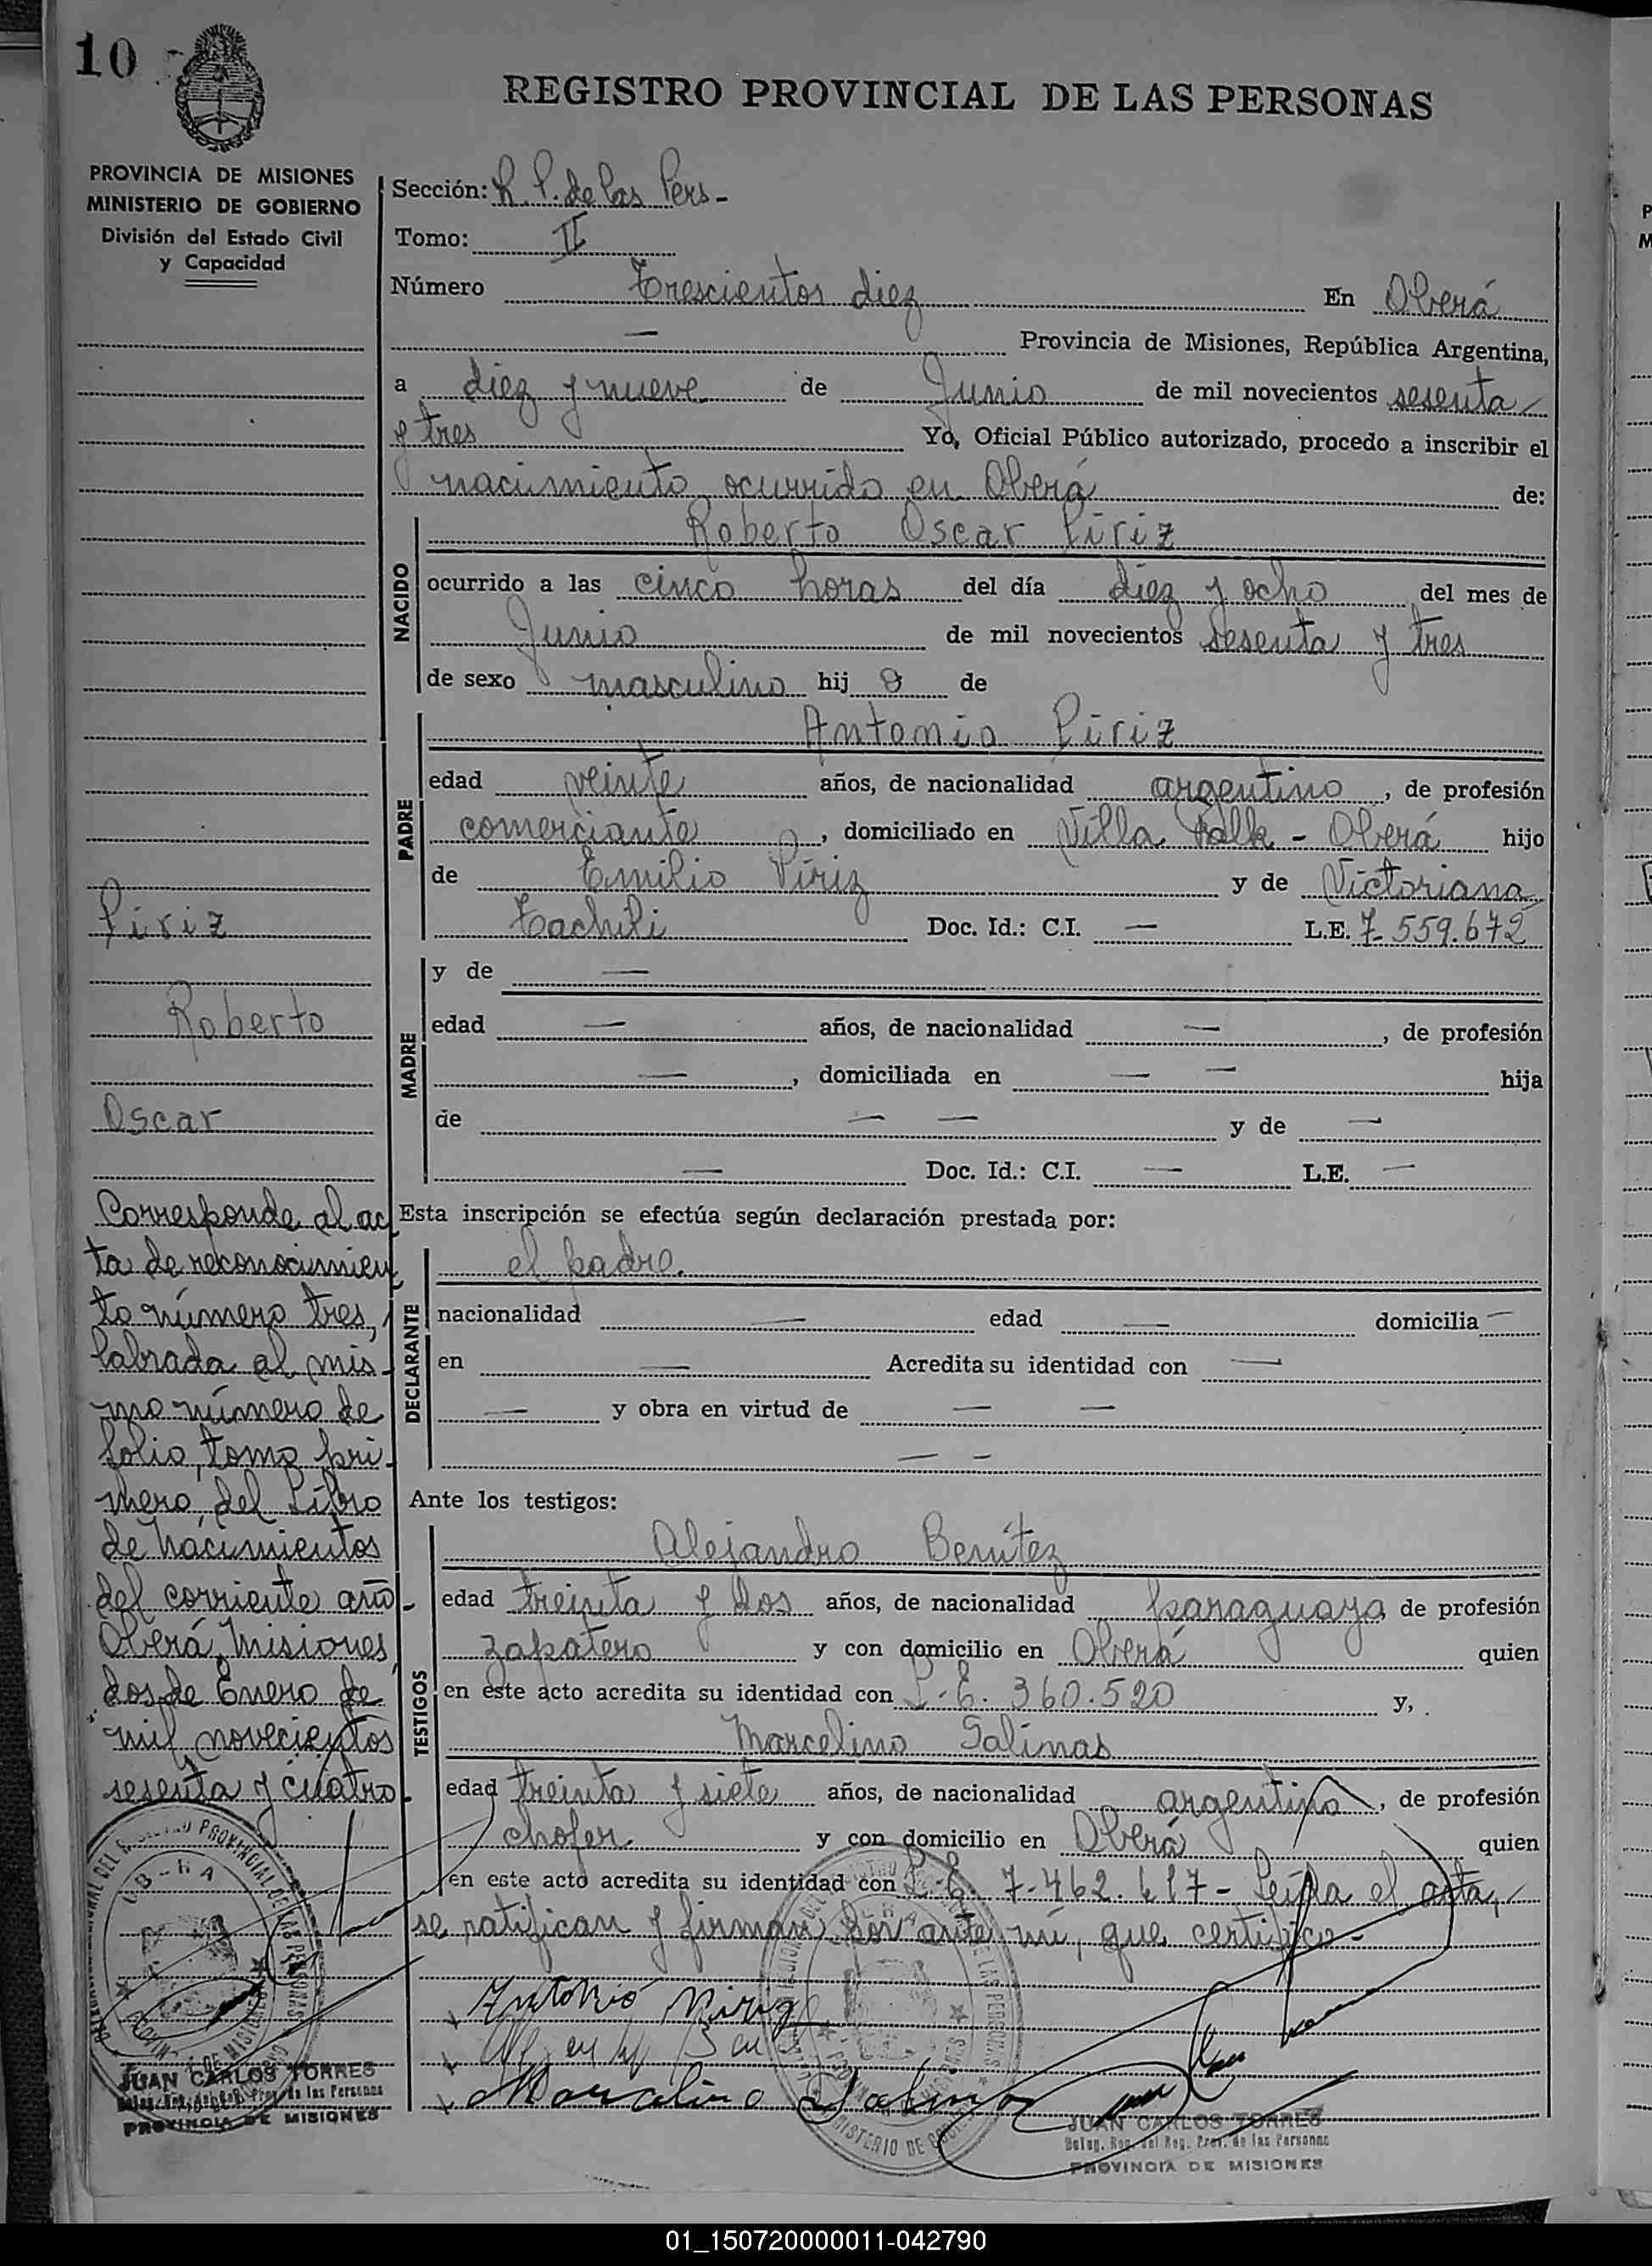 10
REGISTRO PROVINCIAL DE LAS PERSONAS
PROVINCIA DE MISIONES
MINISTERIO DE GOBIERNO
División del Estado Civil
y Capacidad
Sección: R. P. de las Pers -
Tomo: II
Número Trescientos diez En Oberá
— Provincia de Misiones, República Argentina,
a diez y nueve de Junio de mil novecientos sesenta
y tres Yo, Oficial Público autorizado, procedo a inscribir el
nacimiento ocurrido en Oberá de:
NACIDO
Roberto Oscar Píriz
ocurrido a las cinco horas del día diez y ocho del mes de
Junio de mil novecientos sesenta y tres
de sexo masculino hij o de
PADRE
Antonio Píriz
edad veinte años, de nacionalidad argentino, de profesión
comerciante, domiciliado en Villa Falk - Oberá hijo
de Emilio Píriz y de Victoriana
Doc. Id.: C.I. — L.E. 7.559.672
MADRE
y de —
edad — años, de nacionalidad —, de profesión
—, domiciliada en — — hija
de — — y de —
— Doc. Id.: C.I. — L.E. —
Esta inscripción se efectúa según declaración prestada por:
DECLARANTE
el padre.
nacionalidad — edad — domicilia —
en — Acredita su identidad con —
— y obra en virtud de — —
— —
Ante los testigos:
TESTIGOS
Alejandro Benítez
edad treinta y dos años, de nacionalidad paraguaya de profesión
zapatero y con domicilio en Oberá quien
en este acto acredita su identidad con 360.520 y,
Marcelino Salinas
edad treinta y siete años, de nacionalidad argentino, de profesión
chofer. y con domicilio en Oberá quien
en este acto acredita su identidad con L.E. 7.462.617 - Leída el acta,
se ratifican y firman por ante mí, que certifico -
Antonio Piriz
Marcelino Salinas
JUAN CARLOS TORRES
Deleg. Reg. del Reg. Prov. de las Personas
PROVINCIA DE MISIONES
Píriz
Roberto
Oscar
Corresponde al ac
ta de reconocimien
to número tres,
labrada al mis
mo número de
folio, tomo pri
mero, del Libro
de Nacimientos
del corriente año -
Oberá, Misiones,
dos de Enero de
mil novecientos
sesenta y cuatro -
JUAN CARLOS TORRES
Deleg. Reg. del Reg. Prov. de las Personas
PROVINCIA DE MISIONES
01_150720000011-042790